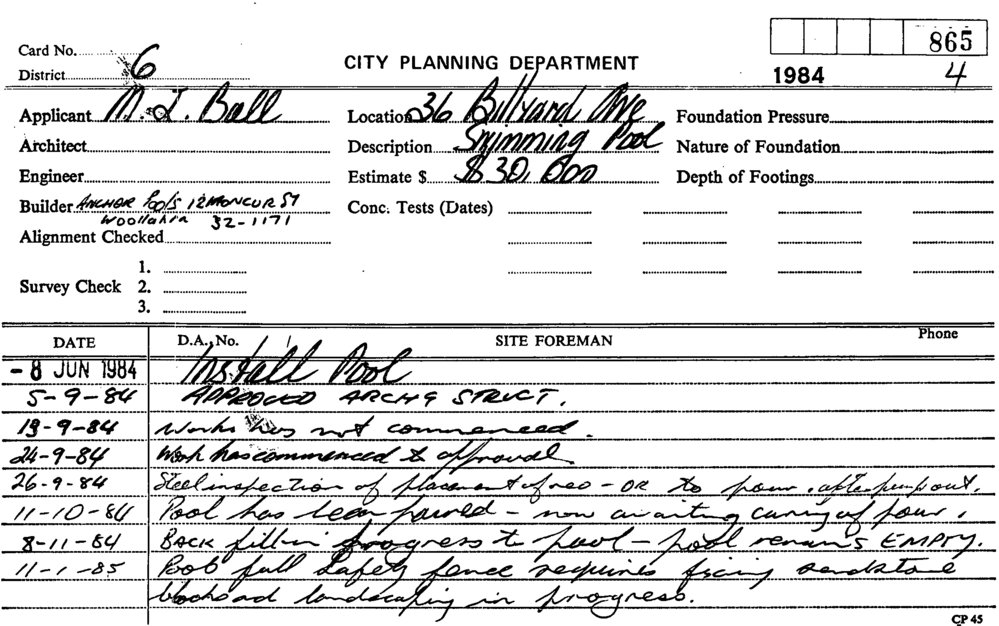 865
Card No. 6
District
CITY PLANNING DEPARTMENT
1984 4
Applicant M. J. Ball Location 36 Billyard Ave Foundation Pressure
Architect Description Swimming Pool Nature of Foundation
Engineer Estimate $ $30,000 Depth of Footings
Builder ANCHOR Pools 12 MONCUR ST Conc. Tests (Dates)
Woollahra 32-1171
Alignment Checked
1.
Survey Check 2.
3.
DATE D.A. No. SITE FOREMAN Phone
- 8 JUN 1984 Install Pool
5-9-84 APPROVED ARCH & STRUCT.
19-9-84 Works has not commenced.
24-9-84 Work has commenced to approval
26-9-84 Steel inspection of placement of reo - OK to pour. after pump out.
11-10-84 Pool has been poured - now awaiting curing of pour.
8-11-84 BACK fill in progress to pool - pool remains EMPTY.
11-1-85 Pool full safety fence requires fixing sandstone
blocks and landscaping in progress.
CP 45